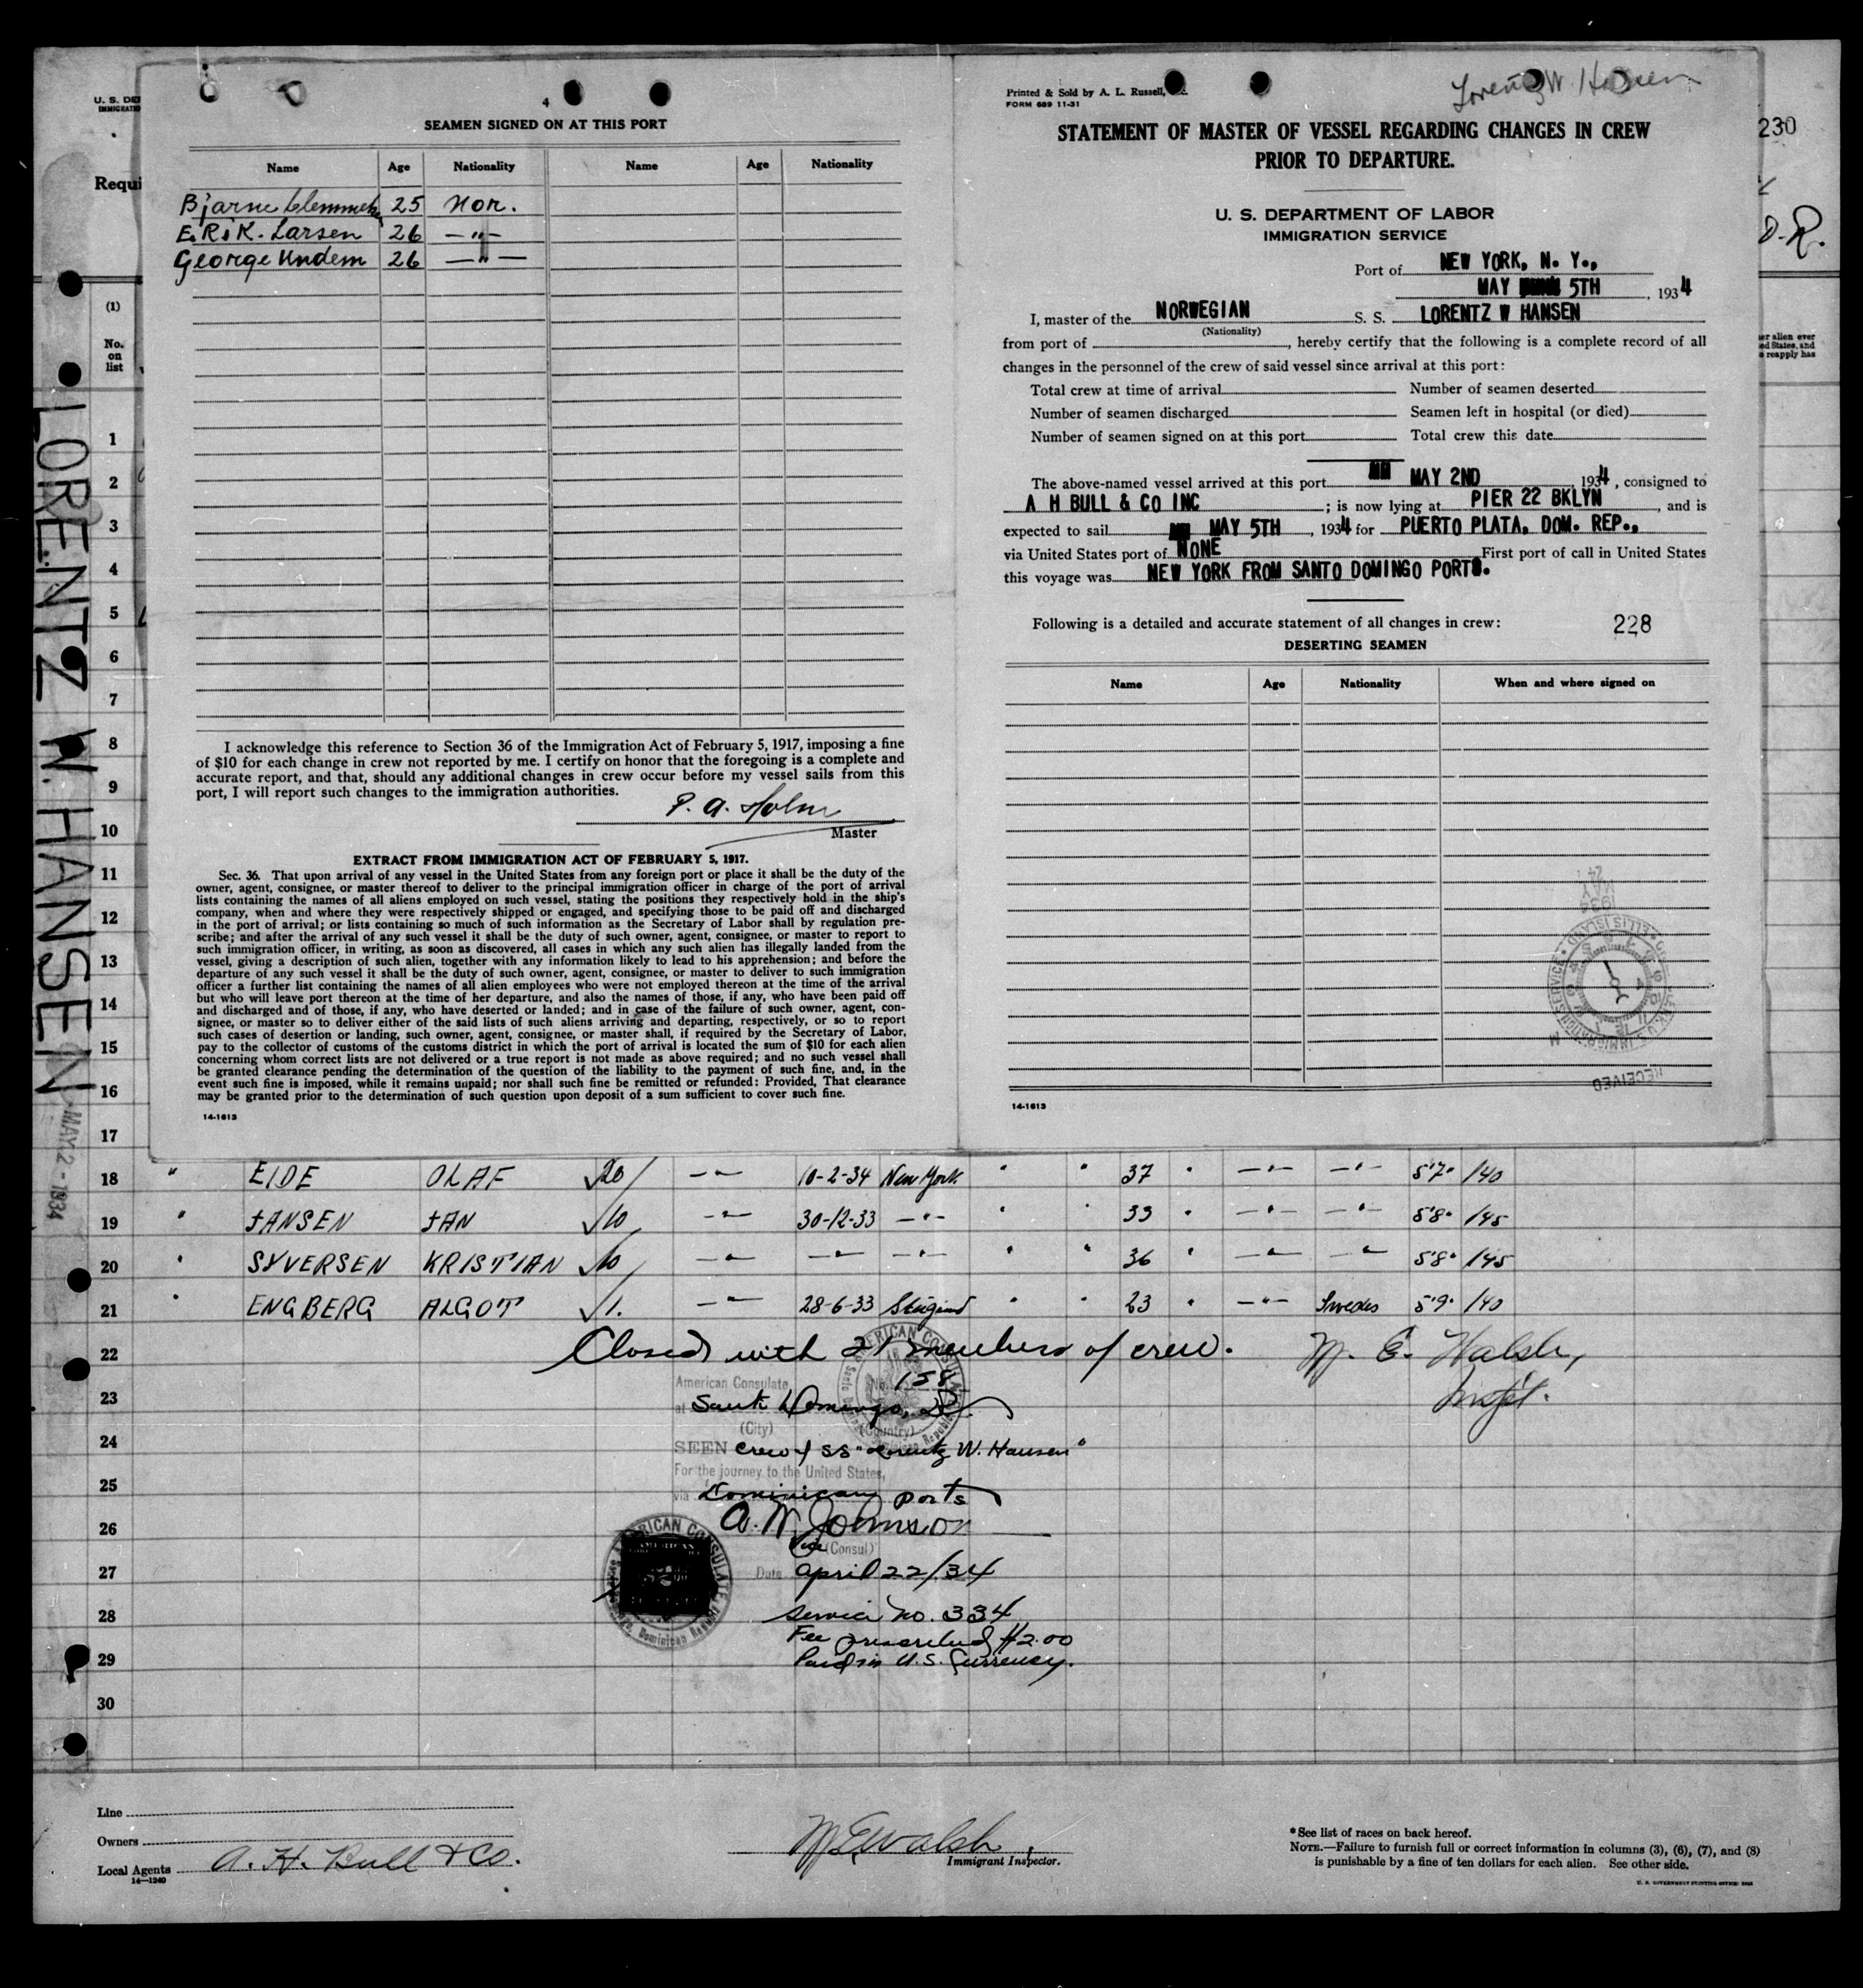 U. S. DE
IMMIGRATIO
Requi
(1)
No.
on
list
LORENTZ W. HANSEN
MAY 2 - 1934
4
SEAMEN SIGNED ON AT THIS PORT
Name Age Nationality Name Age Nationality
Bjarne 25 Nor.
E.RiK. Larsen 26 —"—
George Undem 26 —"—
I acknowledge this reference to Section 36 of the Immigration Act of February 5, 1917, imposing a fine
of $10 for each change in crew not reported by me. I certify on honor that the foregoing is a complete and
accurate report, and that, should any additional changes in crew occur before my vessel sails from this
port, I will report such changes to the immigration authorities.
P. A. Holm
Master
EXTRACT FROM IMMIGRATION ACT OF FEBRUARY 5, 1917.
Sec. 36. That upon arrival of any vessel in the United States from any foreign port or place it shall be the duty of the
owner, agent, consignee, or master thereof to deliver to the principal immigration officer in charge of the port of arrival
lists containing the names of all aliens employed on such vessel, stating the positions they respectively hold in the ship's
company, when and where they were respectively shipped or engaged, and specifying those to be paid off and discharged
in the port of arrival; or lists containing so much of such information as the Secretary of Labor shall by regulation pre-
scribe; and after the arrival of any such vessel it shall be the duty of such owner, agent, consignee, or master to report to
such immigration officer, in writing, as soon as discovered, all cases in which any such alien has illegally landed from the
vessel, giving a description of such alien, together with any information likely to lead to his apprehension; and before the
departure of any such vessel it shall be the duty of such owner, agent, consignee, or master to deliver to such immigration
officer a further list containing the names of all alien employees who were not employed thereon at the time of the arrival
but who will leave port thereon at the time of her departure, and also the names of those, if any, who have been paid off
and discharged and of those, if any, who have deserted or landed; and in case of the failure of such owner, agent, con-
signee, or master so to deliver either of the said lists of such aliens arriving and departing, respectively, or so to report
such cases of desertion or landing, such owner, agent, consignee, or master shall, if required by the Secretary of Labor,
pay to the collector of customs of the customs district in which the port of arrival is located the sum of $10 for each alien
concerning whom correct lists are not delivered or a true report is not made as above required; and no such vessel shall
be granted clearance pending the determination of the question of the liability to the payment of such fine, and, in the
event such fine is imposed, while it remains unpaid; nor shall such fine be remitted or refunded: Provided, That clearance
may be granted prior to the determination of such question upon deposit of a sum sufficient to cover such fine.
14-1613
Printed & Sold by A. L. Russell,
FORM 689 11-31
Lorentz W. Hansen
STATEMENT OF MASTER OF VESSEL REGARDING CHANGES IN CREW
PRIOR TO DEPARTURE.
U. S. DEPARTMENT OF LABOR
IMMIGRATION SERVICE
Port of NEW YORK, N. Y.,
MAY 5TH , 1934
I, master of the NORWEGIAN S. S. LORENTZ W HANSEN
(Nationality)
from port of , hereby certify that the following is a complete record of all
changes in the personnel of the crew of said vessel since arrival at this port:
Total crew at time of arrival Number of seamen deserted
Number of seamen discharged Seamen left in hospital (or died)
Number of seamen signed on at this port Total crew this date
The above-named vessel arrived at this port MAY 2ND 1934, consigned to
A H BULL & CO INC ; is now lying at PIER 22 BKLYN , and is
expected to sail MAY 5TH , 1934 for PUERTO PLATA, DOM. REP.,
via United States port of NONE First port of call in United States
this voyage was NEW YORK FROM SANTO DOMINGO PORTS.
Following is a detailed and accurate statement of all changes in crew: 228
DESERTING SEAMEN
Name Age Nationality When and where signed on
RECEIVED
ELLIS ISLAND
1934
MAY
14-1613
230
D.R.
er alien ever
ed States, and
o reapply has
1
2
3
4
5
6
7
8
9
10
11
12
13
14
15
16
17
18 " EIDE OLAF √20/ —"— 10-2-34 New York " " 37 " —"— —"— 5'7" 140
19 " JANSEN JAN √10/ —"— 30-12-33 —"— " " 33 " —"— —"— 5'8" 145
20 " SYVERSEN KRISTIAN √10/ —"— —"— —"— " " 36 " —"— —"— 5'8" 145
21 " ENGBERG ALGOT √1. —"— 28-6-33 " " 23 " —"— Swedes 5'9" 140
22 Closed with 21 members of crew. M. E. Walsh,
Inspt.
23
24
25
26
27
28
29
30
American Consulate No. 158
at Santo Domingo, D.R.
(City) (Country)
SEEN crew of SS "Lorentz W. Hansen"
For the journey to the United States,
via Dominican ports
A. W. Johnson
Vice (Consul)
Date April 22/34
Service No. 334
Fee prescribed $2.00
Paid in U.S. Currency.
AMERICAN CONSULATE
Dominican Republic
Line
Owners
Local Agents A. H. Bull & Co.
14—1240
M E Walsh,
Immigrant Inspector.
* See list of races on back hereof.
NOTE.—Failure to furnish full or correct information in columns (3), (6), (7), and (8)
is punishable by a fine of ten dollars for each alien. See other side.
U. S. GOVERNMENT PRINTING OFFICE